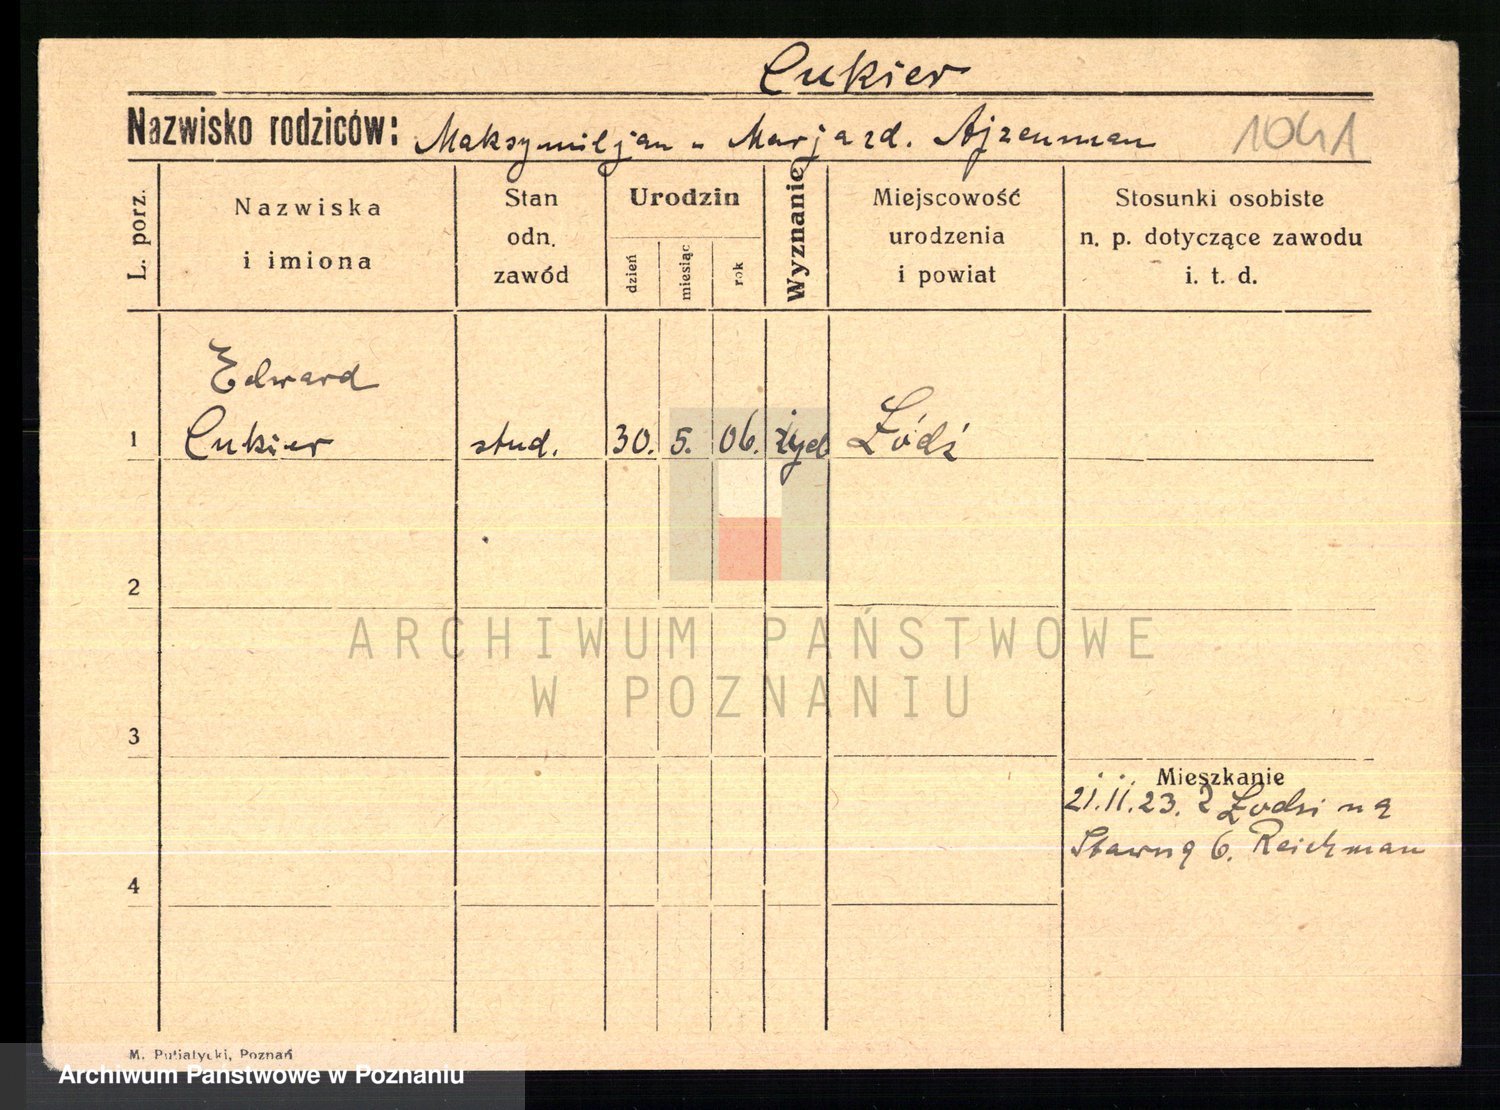 Cukier
Nazwisko rodziców: Maksymiljan - Marja zd. Ajzenman 1041
L. porz.
Nazwiska
i imiona
Stan
odn.
zawód
Urodzin
dzień
miesiąc
rok
Wyznanie
Miejscowość
urodzenia
i powiat
Stosunki osobiste
n. p. dotyczące zawodu
i. t. d.
Edward
1 Cukier stud. 30. 5. 06. żyd Łódź
2
ARCHIWUM PAŃSTWOWE
W POZNANIU
3
Mieszkanie
21.11.23. z Łodzi na
Stawną 6. Reichman
4
M. Putiatycki, Poznań
Archiwum Państwowe w Poznaniu